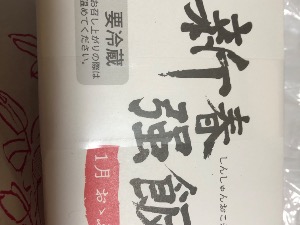 新春
強飯
しんしゅんおこ
1月 お
要冷蔵
お召し上がりの際は
温めてください。